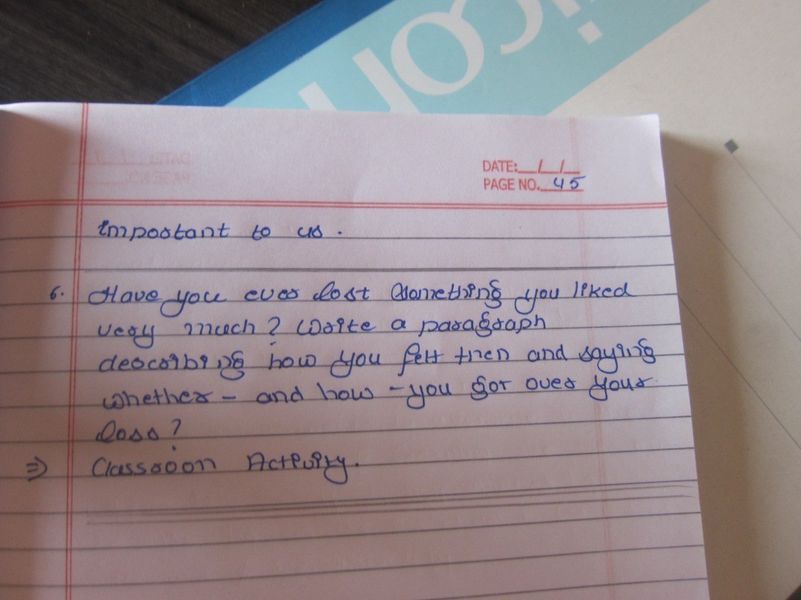 icon
DATE: / /
PAGE NO. 45
important to us.
6. Have you ever lost something you liked
very much? Write a paragraph
describing how you felt then and saying
whether - and how - you got over your
loss?
⇒ Classroon Activity.